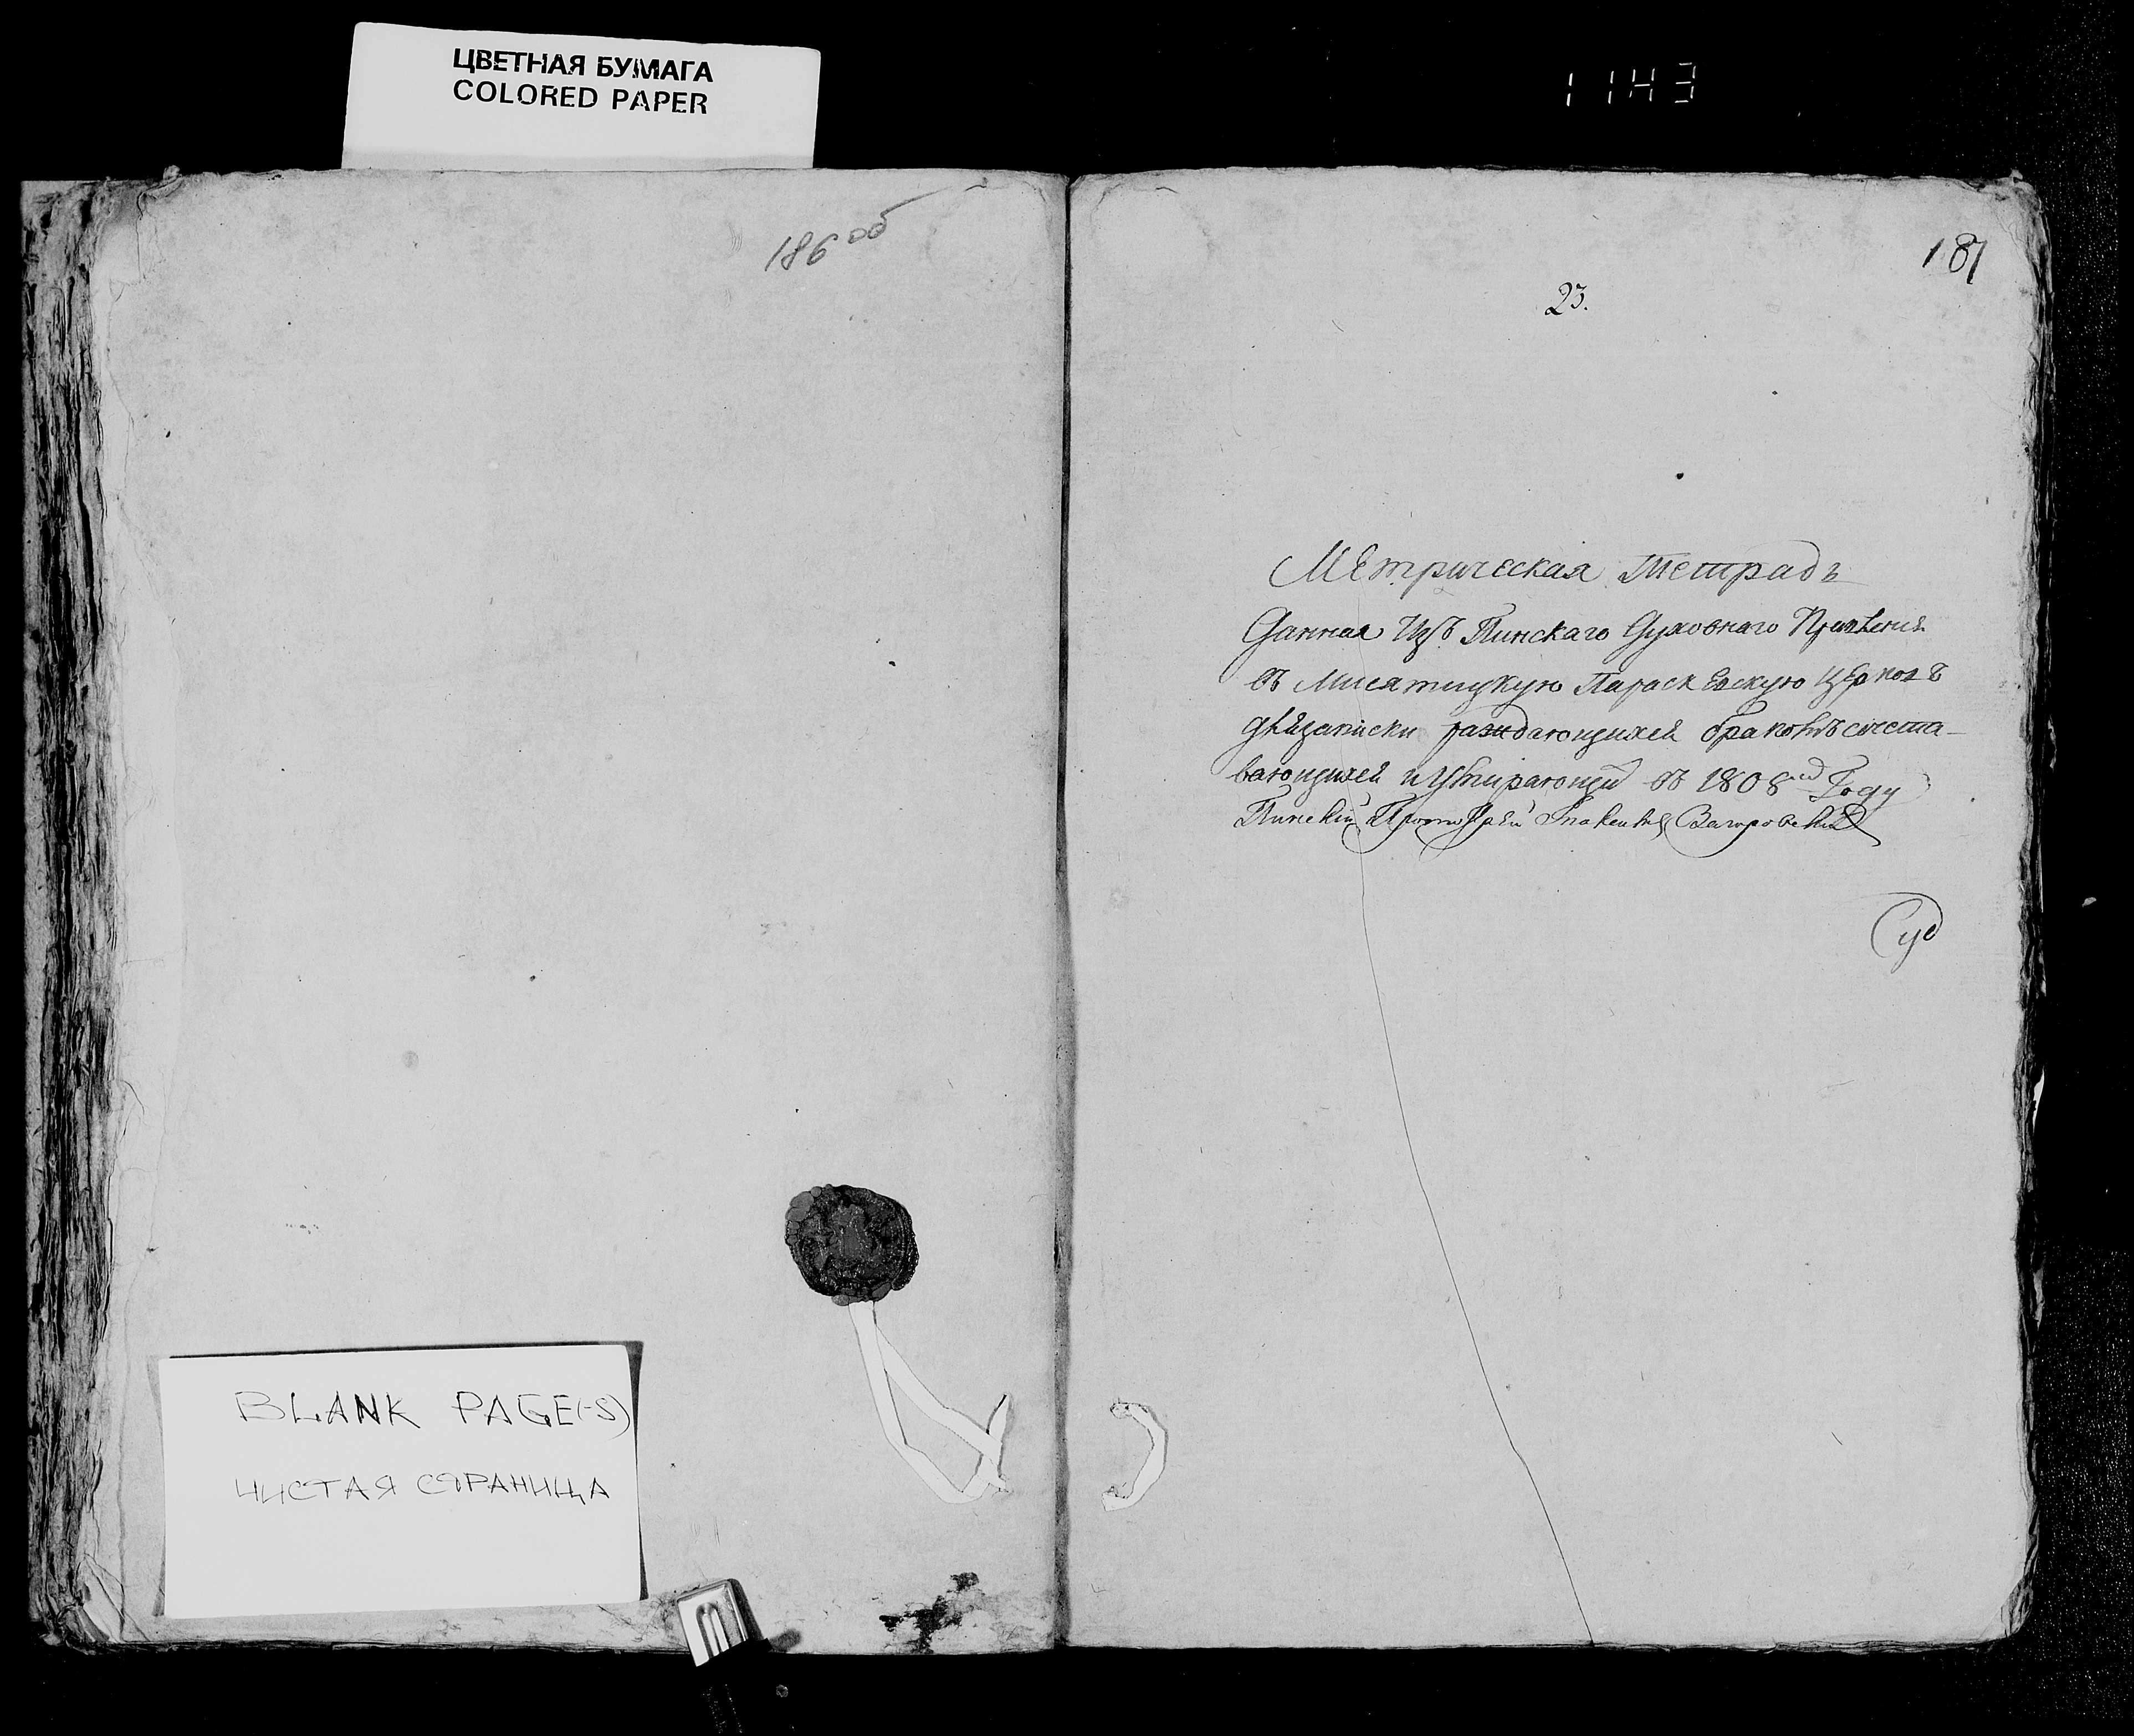 ЦВЕТНАЯ БУМАГА
COLORED PAPER
1143
186 об
187
23.
Метрическая Тетрадь
Данная Изъ Пинскаго Духовнаго Правленія
въ Мисятицкую Параскевскую Церковь
для записки раждающихся браковъ сочета-
вающихся и Умирающих въ 1808м Году
Пинский Протоіерей
BLANK PAGE(-S)
ЧИСТАЯ СТРАНИЦА